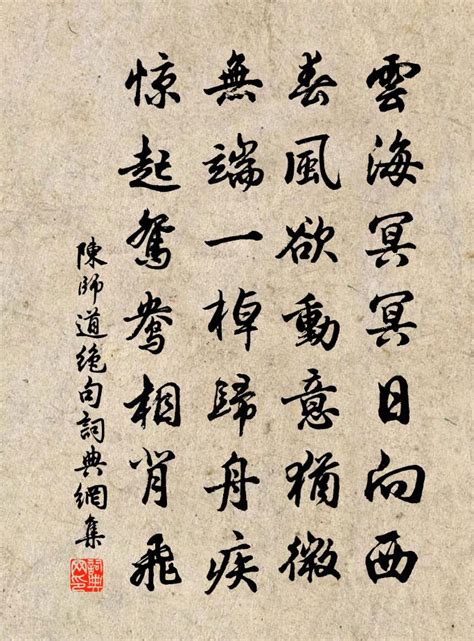 雲海冥冥日向西
春風欲動意猶微
無端一棹歸舟疾
惊起鴛鴦相背飛
陳師道絕句詞典網集
詞典網印